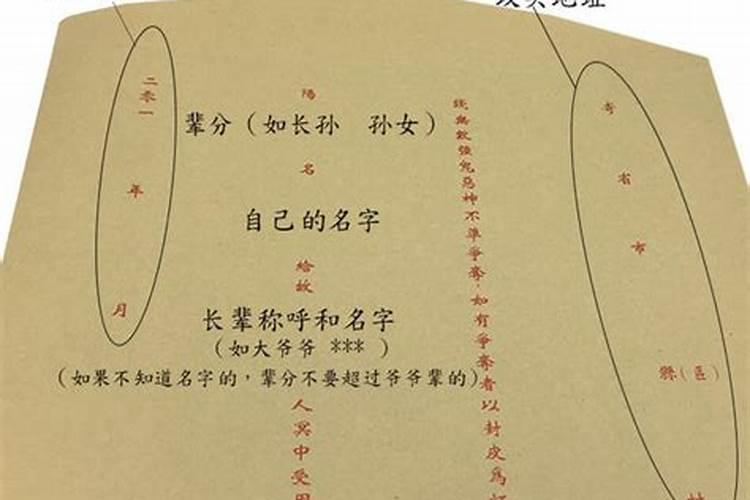 地址
寄省市縣（區）村
錢無強鬼惡神不準爭奪，如有爭奪者以封皮爲
陽
辈分（如长孙 孙女）
名
自己的名字
給故
长辈称呼和名字
（如大爷爷 *** ）
（如果不知道名字的，辈分不要超过爷爷辈的）
人冥中受用
二零一年月